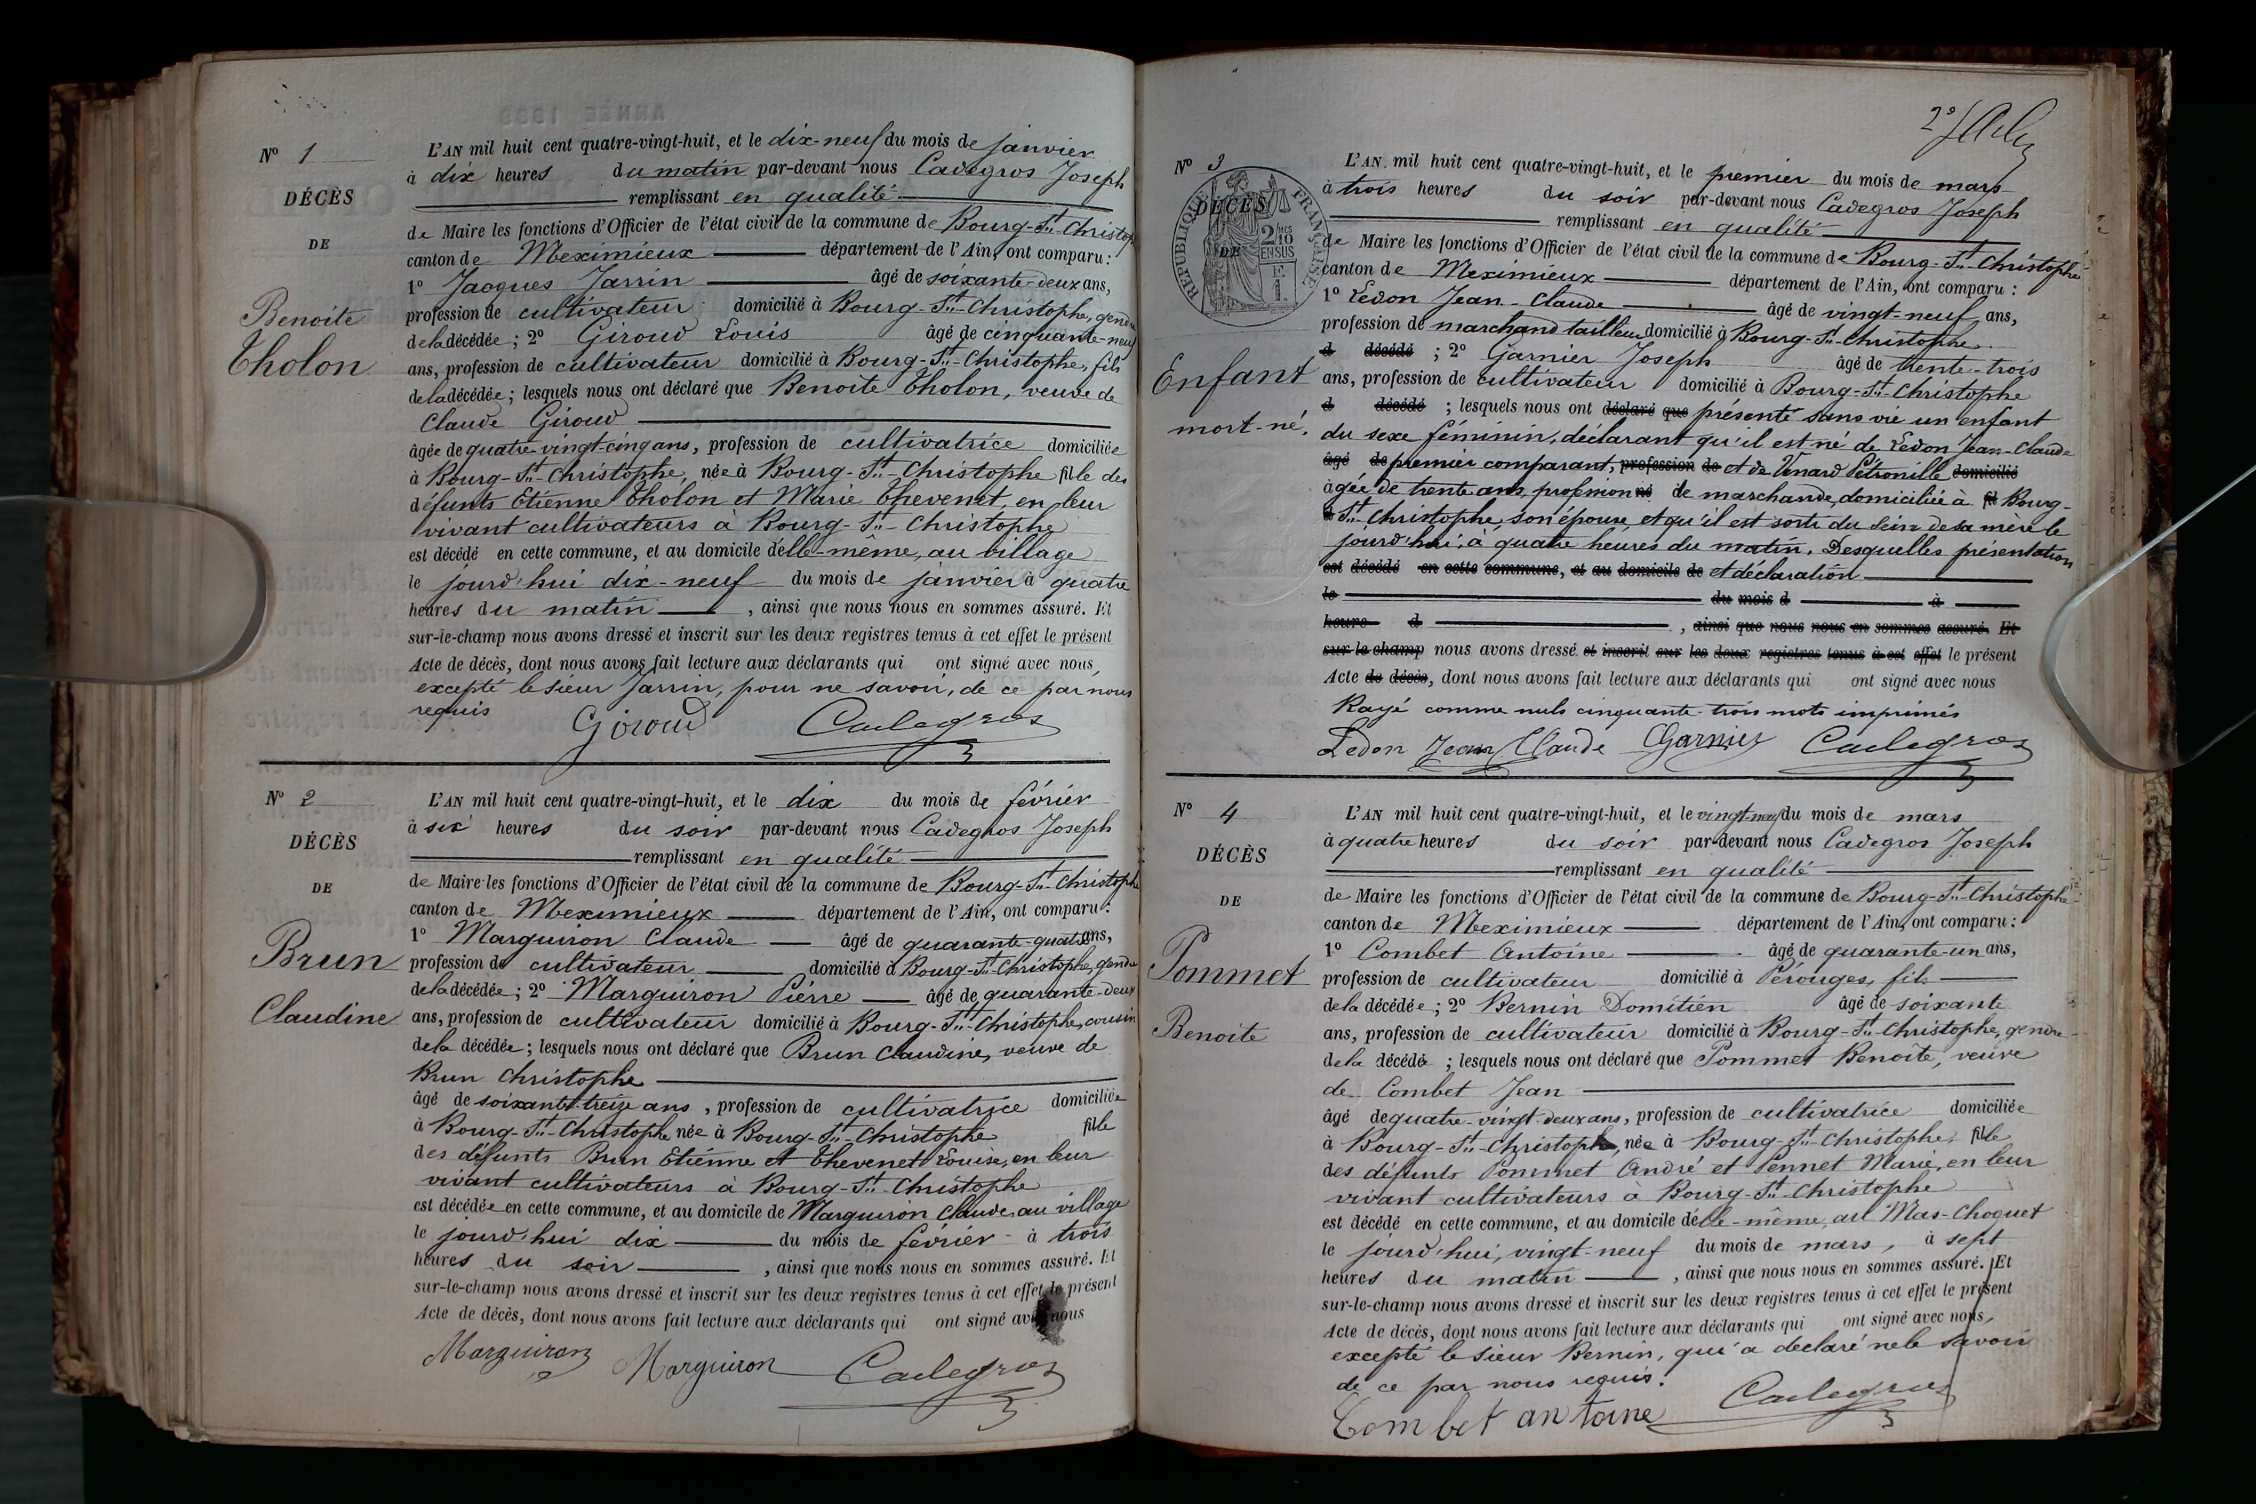 N° 1
DÉCÈS
DE
Benoite
Tholon
L'AN mil huit cent quatre-vingt-huit, et le dix-neuf du mois de janvier
à dix heures du matin par-devant nous Cadegros Joseph
remplissant en qualité
de Maire les fonctions d'Officier de l'état civil de la commune de Bourg-St-Christophe
canton de Meximieux département de l'Ain, ont comparu :
1° Jacques Jarrin âgé de soixante-deux ans,
profession de cultivateur domicilié à Bourg-St-Christophe, gendre
de la décédée ; 2° Giroud Louis âgé de cinquante-neuf
ans, profession de cultivateur domicilié à Bourg-St-Christophe, fils
de la décédée ; lesquels nous ont déclaré que Benoite Tholon, veuve de
Claude Giroud
âgée de quatre vingt-cinq ans, profession de cultivatrice domiciliée
à Bourg-St-Christophe, née à Bourg-St-Christophe fille des
défunts Etienne Tholon et Marie Thevenet, en leur
vivant cultivateurs à Bourg-St-Christophe
est décédé en cette commune, et au domicile d'elle-même, au village
le jourd'hui dix-neuf du mois de janvier à quatre
heures du matin, ainsi que nous nous en sommes assuré. Et
sur-le-champ nous avons dressé et inscrit sur les deux registres tenus à cet effet le présent
Acte de décès, dont nous avons fait lecture aux déclarants qui ont signé avec nous,
excepté le sieur Jarrin, pour ne savoir, de ce par nous
requis
Giroud Cadegros
N° 2
DÉCÈS
DE
Brun
Claudine
L'AN mil huit cent quatre-vingt-huit, et le dix du mois de février
à six heures du soir par-devant nous Cadegros Joseph
remplissant en qualité
de Maire les fonctions d'Officier de l'état civil de la commune de Bourg-St-Christophe
canton de Meximieux département de l'Ain, ont comparu :
1° Marguiron Claude âgé de quarante-quatre ans,
profession de cultivateur domicilié à Bourg-St-Christophe, gendre
de la décédée ; 2° Marguiron Pierre âgé de quarante-deux
ans, profession de cultivateur domicilié à Bourg-St-Christophe, cousin
de la décédée ; lesquels nous ont déclaré que Brun Claudine, veuve de
Brun Christophe
âgé de soixante-treize ans, profession de cultivatrice domiciliée
à Bourg-St-Christophe née à Bourg-St-Christophe fille
des défunts Brun Etienne et Thevenet Louise, en leur
vivant cultivateurs à Bourg-St-Christophe
est décédée en cette commune, et au domicile de Marguiron Claude, au village
le jourd'hui dix du mois de février à trois
heures du soir, ainsi que nous nous en sommes assuré. Et
sur-le-champ nous avons dressé et inscrit sur les deux registres tenus à cet effet le présent
Acte de décès, dont nous avons fait lecture aux déclarants qui ont signé avec nous
Marguiron Marguiron Cadegros
N° 3
DÉCÈS
DE
RÉPUBLIQUE FRANÇAISE
2/10 EN SUS
Enfant
mort-né.
L'AN mil huit cent quatre-vingt-huit, et le premier du mois de mars
à trois heures du soir par-devant nous Cadegros Joseph
remplissant en qualité
de Maire les fonctions d'Officier de l'état civil de la commune de Bourg-St-Christophe
canton de Meximieux département de l'Ain, ont comparu :
1° Ledon Jean-Claude âgé de vingt-neuf ans,
profession de marchand tailleur domicilié à Bourg-St-Christophe
d décédé ; 2° Garnier Joseph âgé de trente-trois
ans, profession de cultivateur domicilié à Bourg-St-Christophe
d décédé ; lesquels nous ont déclaré que présenté sans vie un enfant
du sexe féminin, déclarant qu'il est né de Ledon Jean-Claude
âgé de premier comparant, profession de et de Venard Pétronille domicilié
âgée de trente ans, profession né de marchande, domiciliée à fil Bourg-
St-Christophe, son épouse, et qu'il est sorti du sein de sa mère le
jourd'hui, à quatre heures du matin. Desquelles présentation
est décédé en cette commune, et au domicile de et déclaration
le du mois d à
heure d , ainsi que nous nous en sommes assuré. Et
sur-le-champ nous avons dressé et inscrit sur les deux registres tenus à cet effet le présent
Acte de décès, dont nous avons fait lecture aux déclarants qui ont signé avec nous
Rayé comme nuls cinquante-trois mots imprimés
Ledon Jean Claude Garnier Cadegros
N° 4
DÉCÈS
DE
Pommet
Benoite
L'AN mil huit cent quatre-vingt-huit, et le vingt-neuf du mois de mars
à quatre heures du soir par-devant nous Cadegros Joseph
remplissant en qualité
de Maire les fonctions d'Officier de l'état civil de la commune de Bourg-St-Christophe
canton de Meximieux département de l'Ain, ont comparu :
1° Combet Antoine âgé de quarante-un ans,
profession de cultivateur domicilié à Pérouges, fils
de la décédée ; 2° Bernin Domitien âgé de soixante
ans, profession de cultivateur domicilié à Bourg-St-Christophe, gendre
de la décédé ; lesquels nous ont déclaré que Pommet Benoite, veuve
de Combet Jean
âgé de quatre-vingt-deux ans, profession de cultivatrice domiciliée
à Bourg-St-Christophe, née à Bourg-St-Christophe, fille
des défunts Pommet André et Pennet Marie, en leur
vivant cultivateurs à Bourg-St-Christophe
est décédé en cette commune, et au domicile d'elle-même, au Mas-Choguet
le jourd'hui, vingt-neuf du mois de mars, à sept
heures du matin, ainsi que nous nous en sommes assuré. Et
sur-le-champ nous avons dressé et inscrit sur les deux registres tenus à cet effet le présent
Acte de décès, dont nous avons fait lecture aux déclarants qui ont signé avec nous,
excepté le sieur Bernin, qui a déclaré ne le savoir
de ce par nous requis.
Combet antoine Cadegros